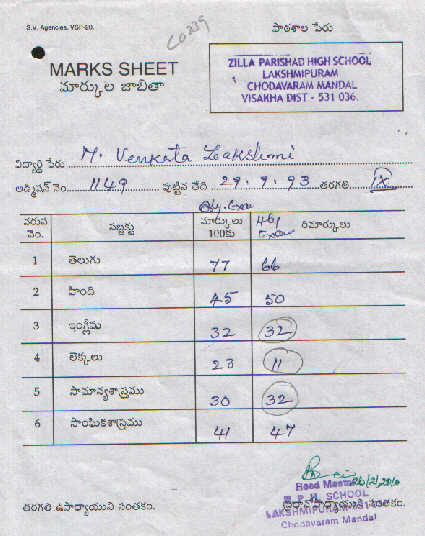 S.V. Agencies, VSP-20.
C0239
పాఠశాల పేరు
MARKS SHEET
మార్కుల జాబితా
ZILLA PARISHAD HIGH SCHOOL
LAKSHMIPURAM
CHODAVARAM MANDAL
VISAKHA DIST - 531 036.
విద్యార్థి పేరు M. Venkata Lakshmi
అడ్మిషన్ నెం. 1149 పుట్టిన తేది 29.9.93 తరగతి IX
వరుస నెం. సబ్జక్టు మార్కులు 100కు రిమార్కులు
1 తెలుగు 77 66
2 హింది 45 50
3 ఇంగ్లీషు 32 32
4 లెక్కలు 23 11
5 సామాన్యశాస్త్రము 30 32
6 సాంఘికశాస్త్రము 41 47
తరగతి ఉపాధ్యాయుని సంతకం.
ప్రధానోపాధ్యాయుని సంతకం.
Head Master
Z. P. H. SCHOOL
LAKSHMIPURAM
Chodavaram Mandal